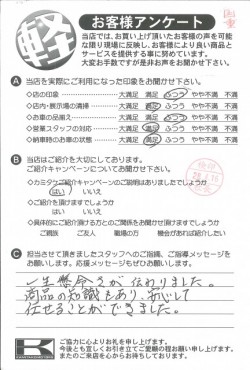 軽
お客様アンケート
当店では、お買い上げ頂いたお客様の声を可能
な限り現場に反映し、お客様により良い商品と
サービスを提供する事に努めています。
大変お手数ですが是非お声をお聞かせ下さい。
A 当店を実際にご利用になった印象をお聞かせ下さい。
・店の印象 大満足 満足 ふつう やや不満 不満
・店内・展示場の清掃 大満足 満足 ふつう やや不満 不満
・お車の品揃え 大満足 満足 ふつう やや不満 不満
・営業スタッフの対応 大満足 満足 ふつう やや不満 不満
・納車時のお車の状態 大満足 満足 ふつう やや不満 不満
B 当店はご紹介を大切にしております。
ご紹介キャンペーンについてお聞かせ下さい。
・カミタケご紹介キャンペーンのご説明はありましたでしょうか
はい いいえ
・ご紹介を頂けますでしょうか
はい いいえ
・具体的にご紹介頂ける方とのご関係をお聞かせ頂けますでしょうか
ご親族 ご友人 職場の方 機会があれば紹介したい
C 担当させて頂きましたスタッフへのご指摘、ご指導メッセージを
お願いします。応援メッセージもぜひお願いします。
一生懸命さが伝わりました。
商品の知識もあり、安心して
任せることができました。
ご協力に心よりお礼を申し上げます。
今後とも宜しくお引き立てご愛顧の程お願い申し上げます。
またのご来店を心からお待ちしております。